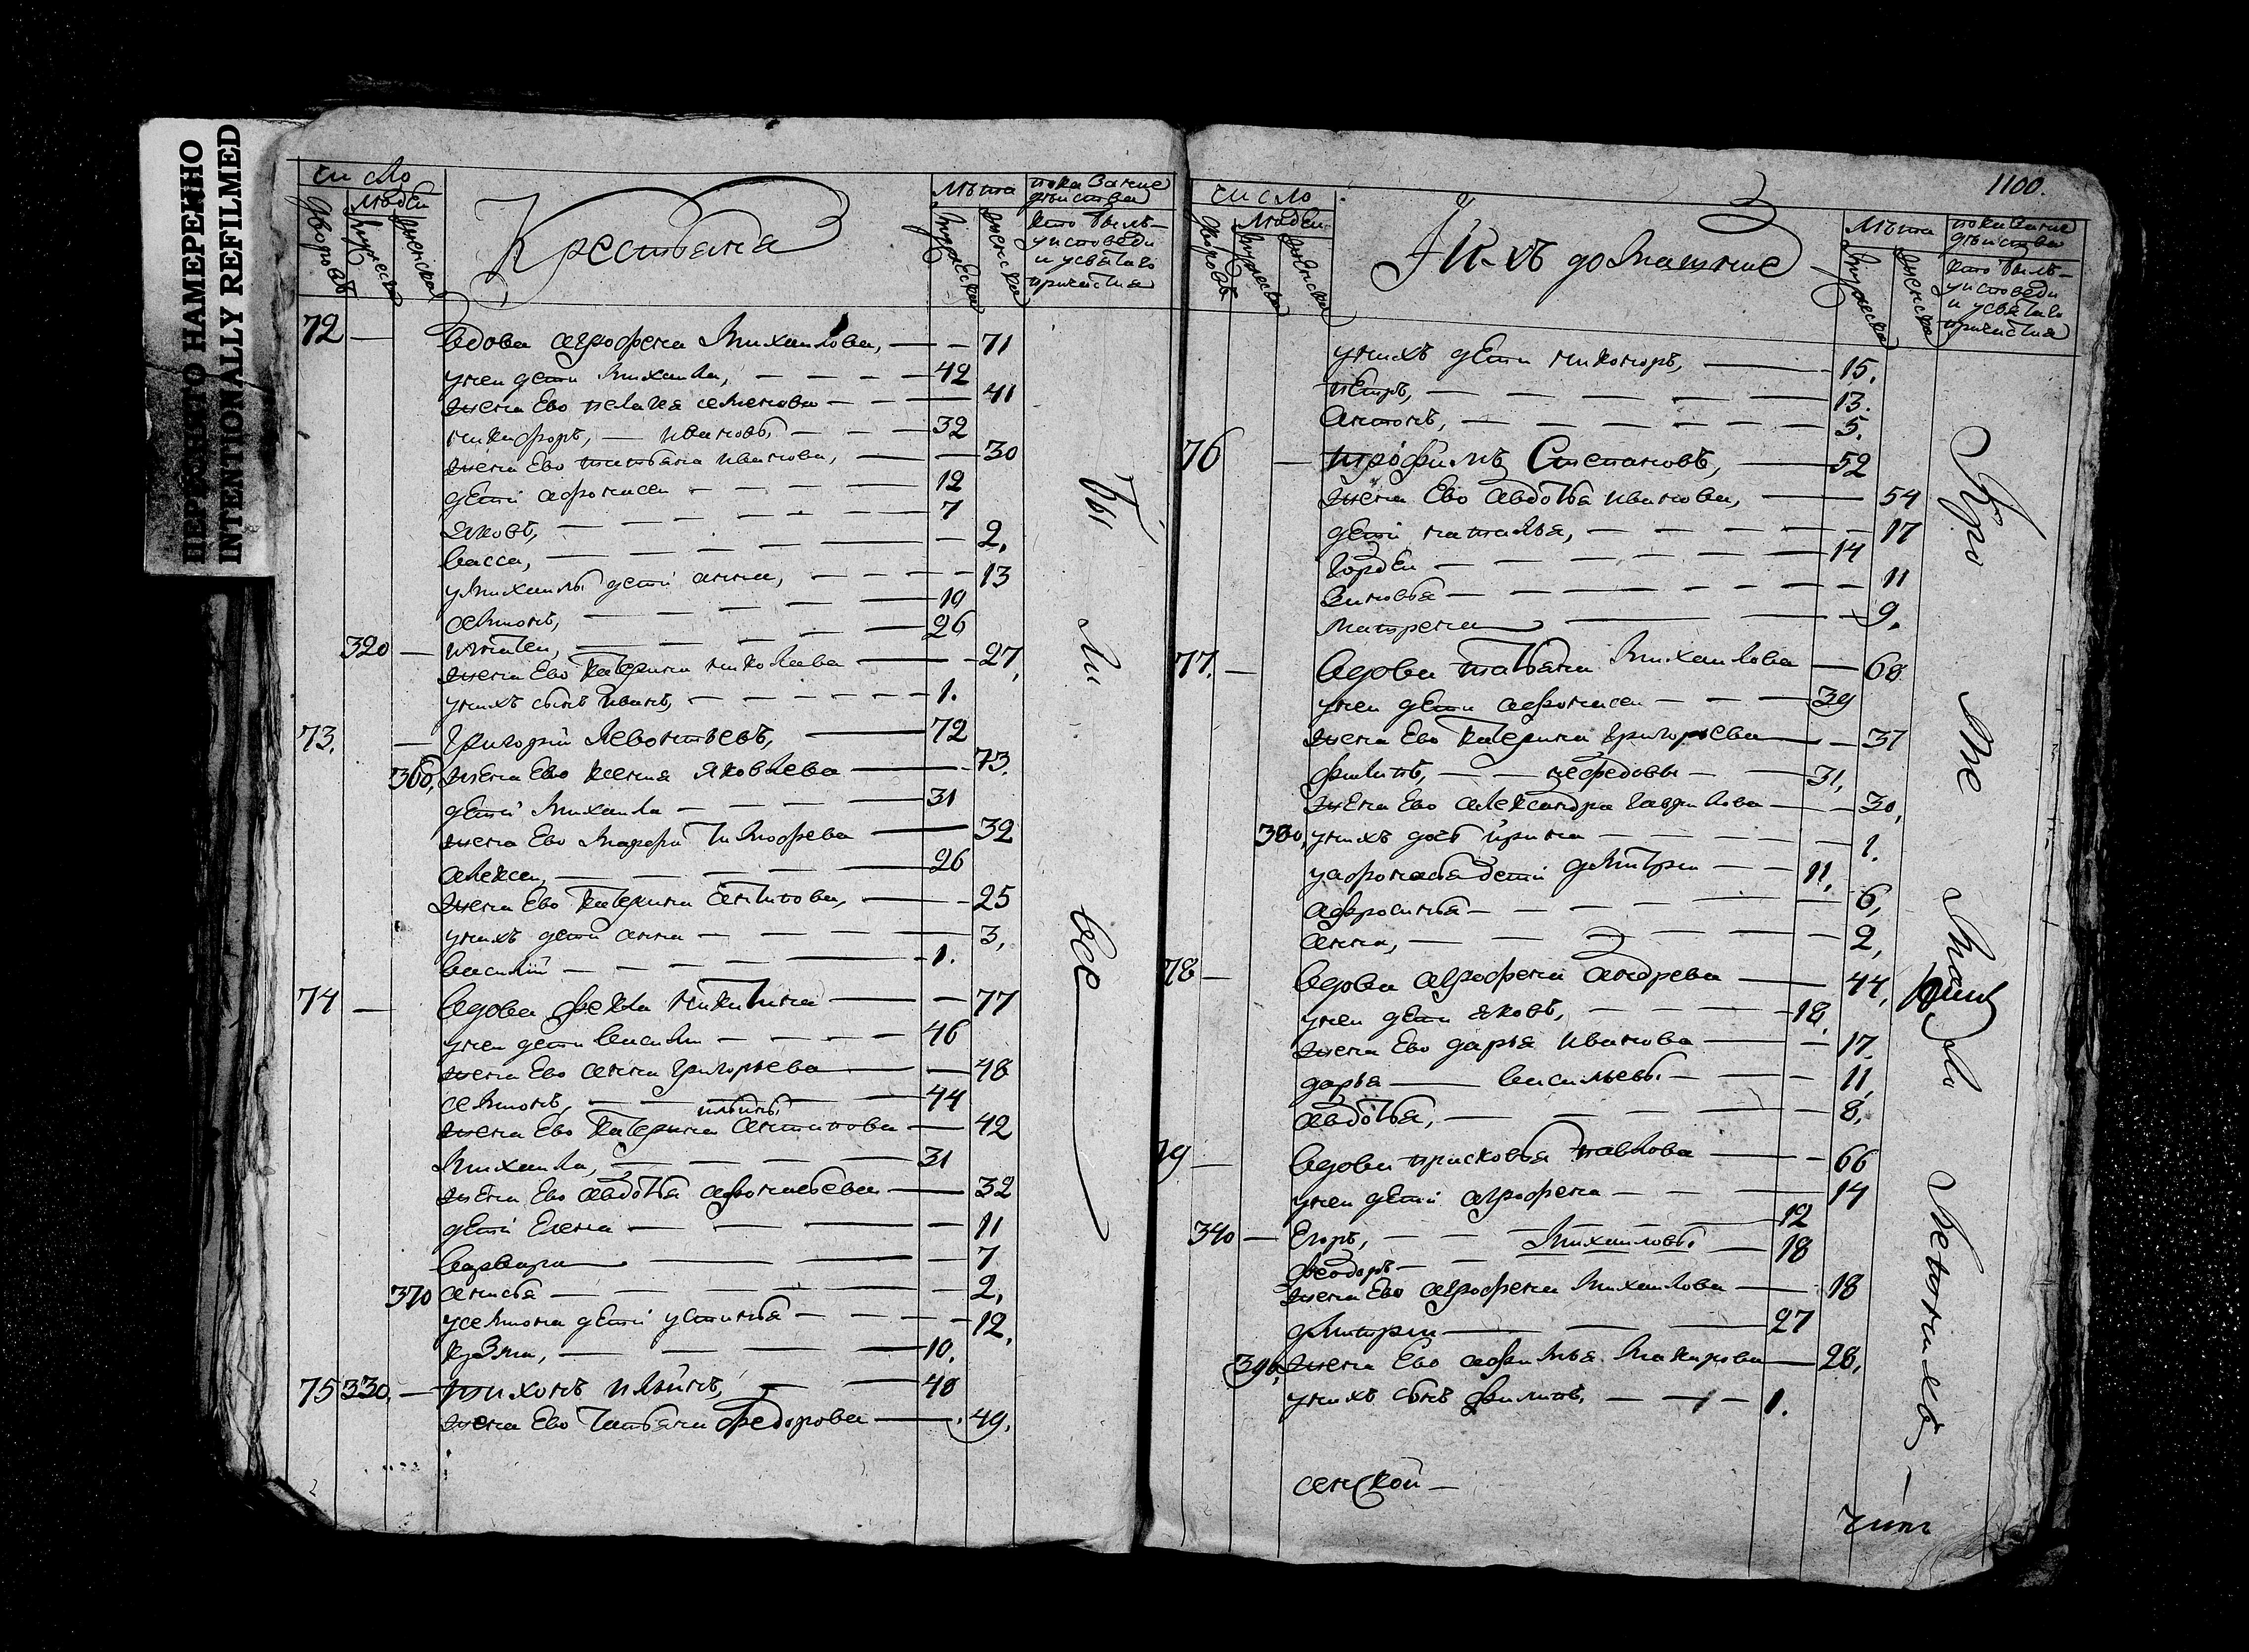 ПЕРЕСНЯТО НАМЕРЕННО
INTENTIONALLY REFILMED
число
людей
дворовъ
мужеска
женска
Крестьяня
лѣта
мужеска
женска
показание
действа
кто былъ
уисповеди
и усвятаго
причастия
72
вдова агрофена михаилова, 71
унеи дети михаила, 42
жена Ево пелагея семенова 41
никифоръ, ивановы 32
жена Ево татьяна иванова, 30
дети афонасеи 12
яковъ, 7
васса, 2,
умихаилы дети анна, 13
антонъ, 10
320 игнатеи, 26
жена Ево катерина николаева 27,
унихъ сынъ иванъ, 1.
73. Григорий Левонтьевъ, 72
360, жена Ево ксения яковлева 73.
дети михаила 31
жена Ево марфа тимофева 32
алексеи, 26
жена Ево катерина антипова, 25
унихъ дети анна 3,
василий 1.
74 вдова фекла никитина 77
унеи дети василии 46
жена Ево анна григорьева 48
семионъ, ильины 44
жена Ево катерина антипова 42
михаила, 31
жена Ево авдотья афонасьева 32
дети Елена 11
варвара 7
370 анисья 2,
усемиона дети устинья 12,
кузма, 10,
75 330, тихонъ ильинъ, 48
жена Ево татьяна федорова 49,
Бы
ли
все
1100.
число
людеи
дворовъ
мужеска
женска
И ихъ домашние
лѣта
мужеска
женска
показание
действа
кто былъ
уисповеди
и усвятаго
причастия
унихъ дети никоноръ, 15.
петръ, 13.
антонъ, 5.
76 трофимъ Степановъ, 52
жена Ево авдотья иванова, 54
дети наталья, 17
гордеи 14
зиновья 11
матрена 9,
77. вдова татьяна михаилова 68
унеи дети афонасеи 39
жена Ево катерина григорьева 37
филипъ, нефедовы 31,
жена Ево александра гаврилова 30,
380, унихъ дочь ирина 1.
уафонасья дети дмитреи 11,
афросинья 6,
анна, 2,
78 вдова агрофена андрева 44,
унеи дети яковъ, 18,
жена Ево дарья иванова 17
дарья васильевы 11,
авдотья, 8,
79 вдова прасковья павлова 66
унеи дети агрофена 14
340 Егоръ, михаиловы 12
феодоръ 18
жена Ево агрофена михаилова 18
дмитреи 27
390, жена Ево афимья макарова 28,
унихъ сынъ филипъ, 1.
сенской